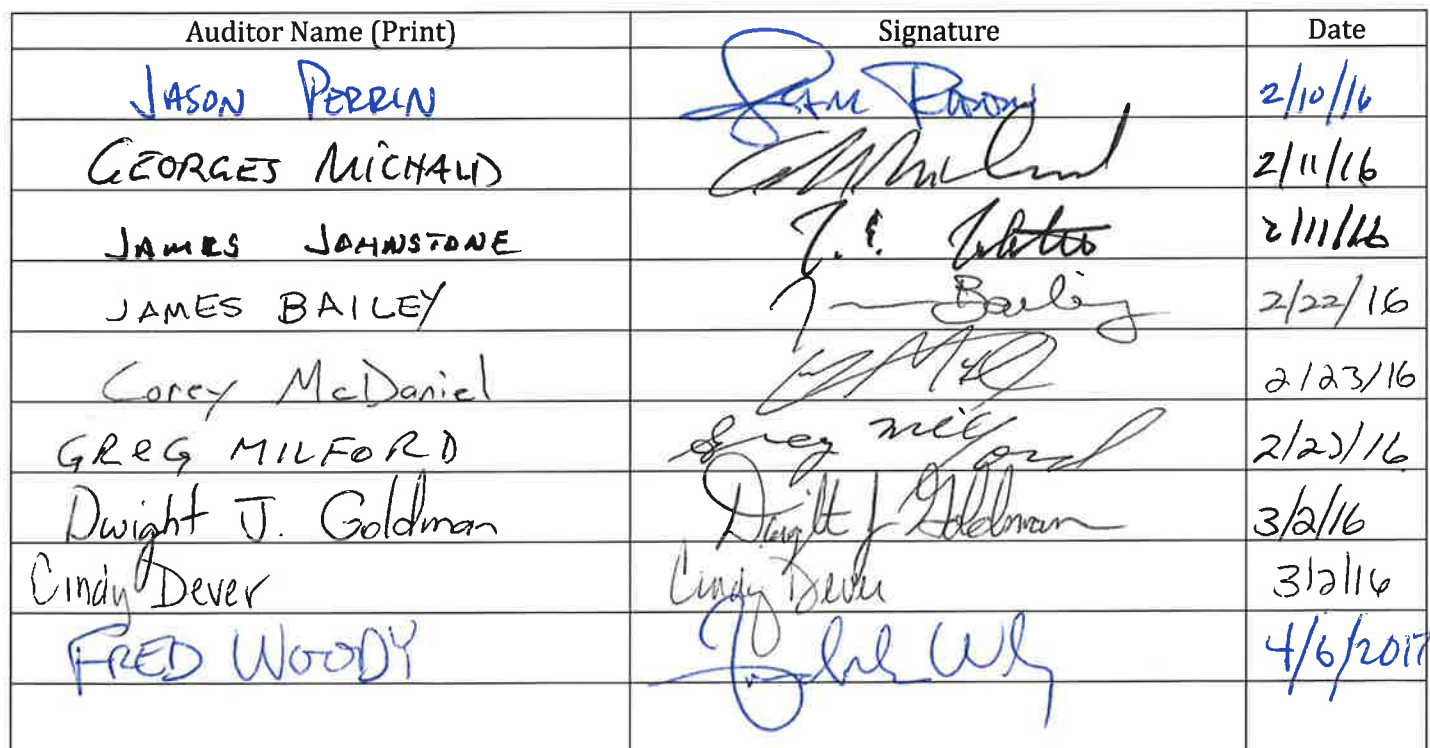 Auditor Name (Print) Signature Date
JASON PERRIN 2/10/16
GEORGES MICHAUD 2/11/16
JAMES JOHNSTONE 2/11/16
JAMES BAILEY Bailey 2/22/16
Corey McDaniel 2/23/16
GREG MILFORD Greg Milford 2/23/16
Dwight J. Goldman Dwight J Goldman 3/2/16
Cindy Dever Cindy Dever 3/2/16
FRED WOODY 4/6/2017